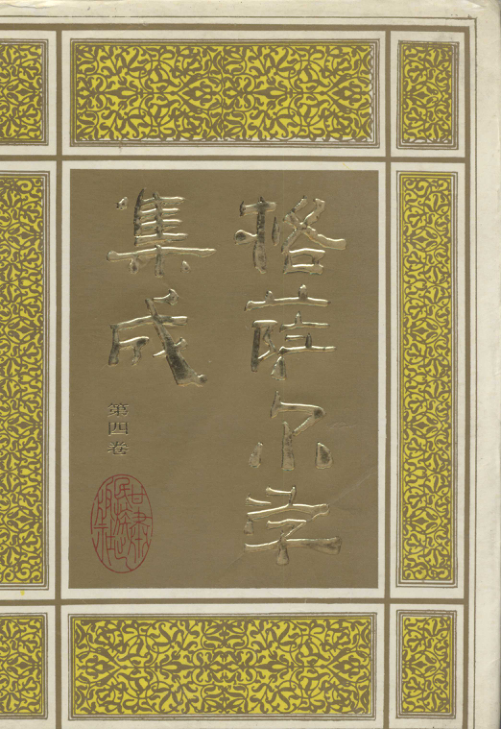 格萨尔学
集成
第四卷
甘肅
民族出
版社